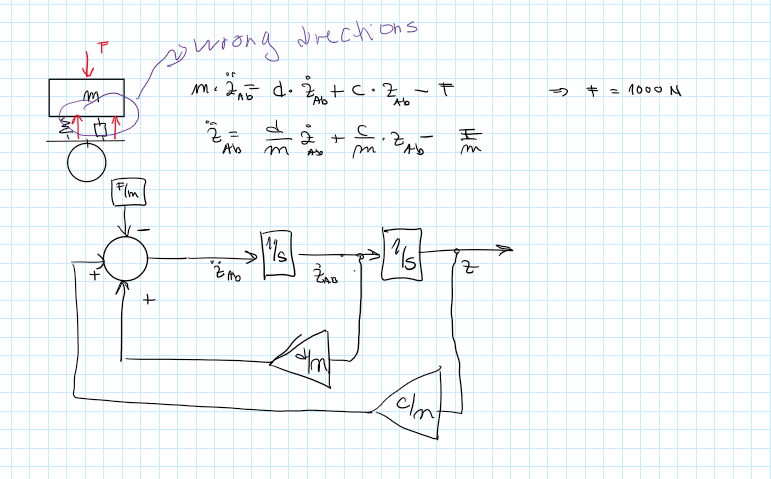 wrong directions
F
m
m · z̈_Ab = d · ż_Ab + c · z_Ab − F ⇒ F = 1000 N
z̈_Ab = d/m ż_Ab + c/m · z_Ab − F/m
F/m
−
+
z̈_Ab
1/s
ż_AB
1/s
z
+
d/m
c/m